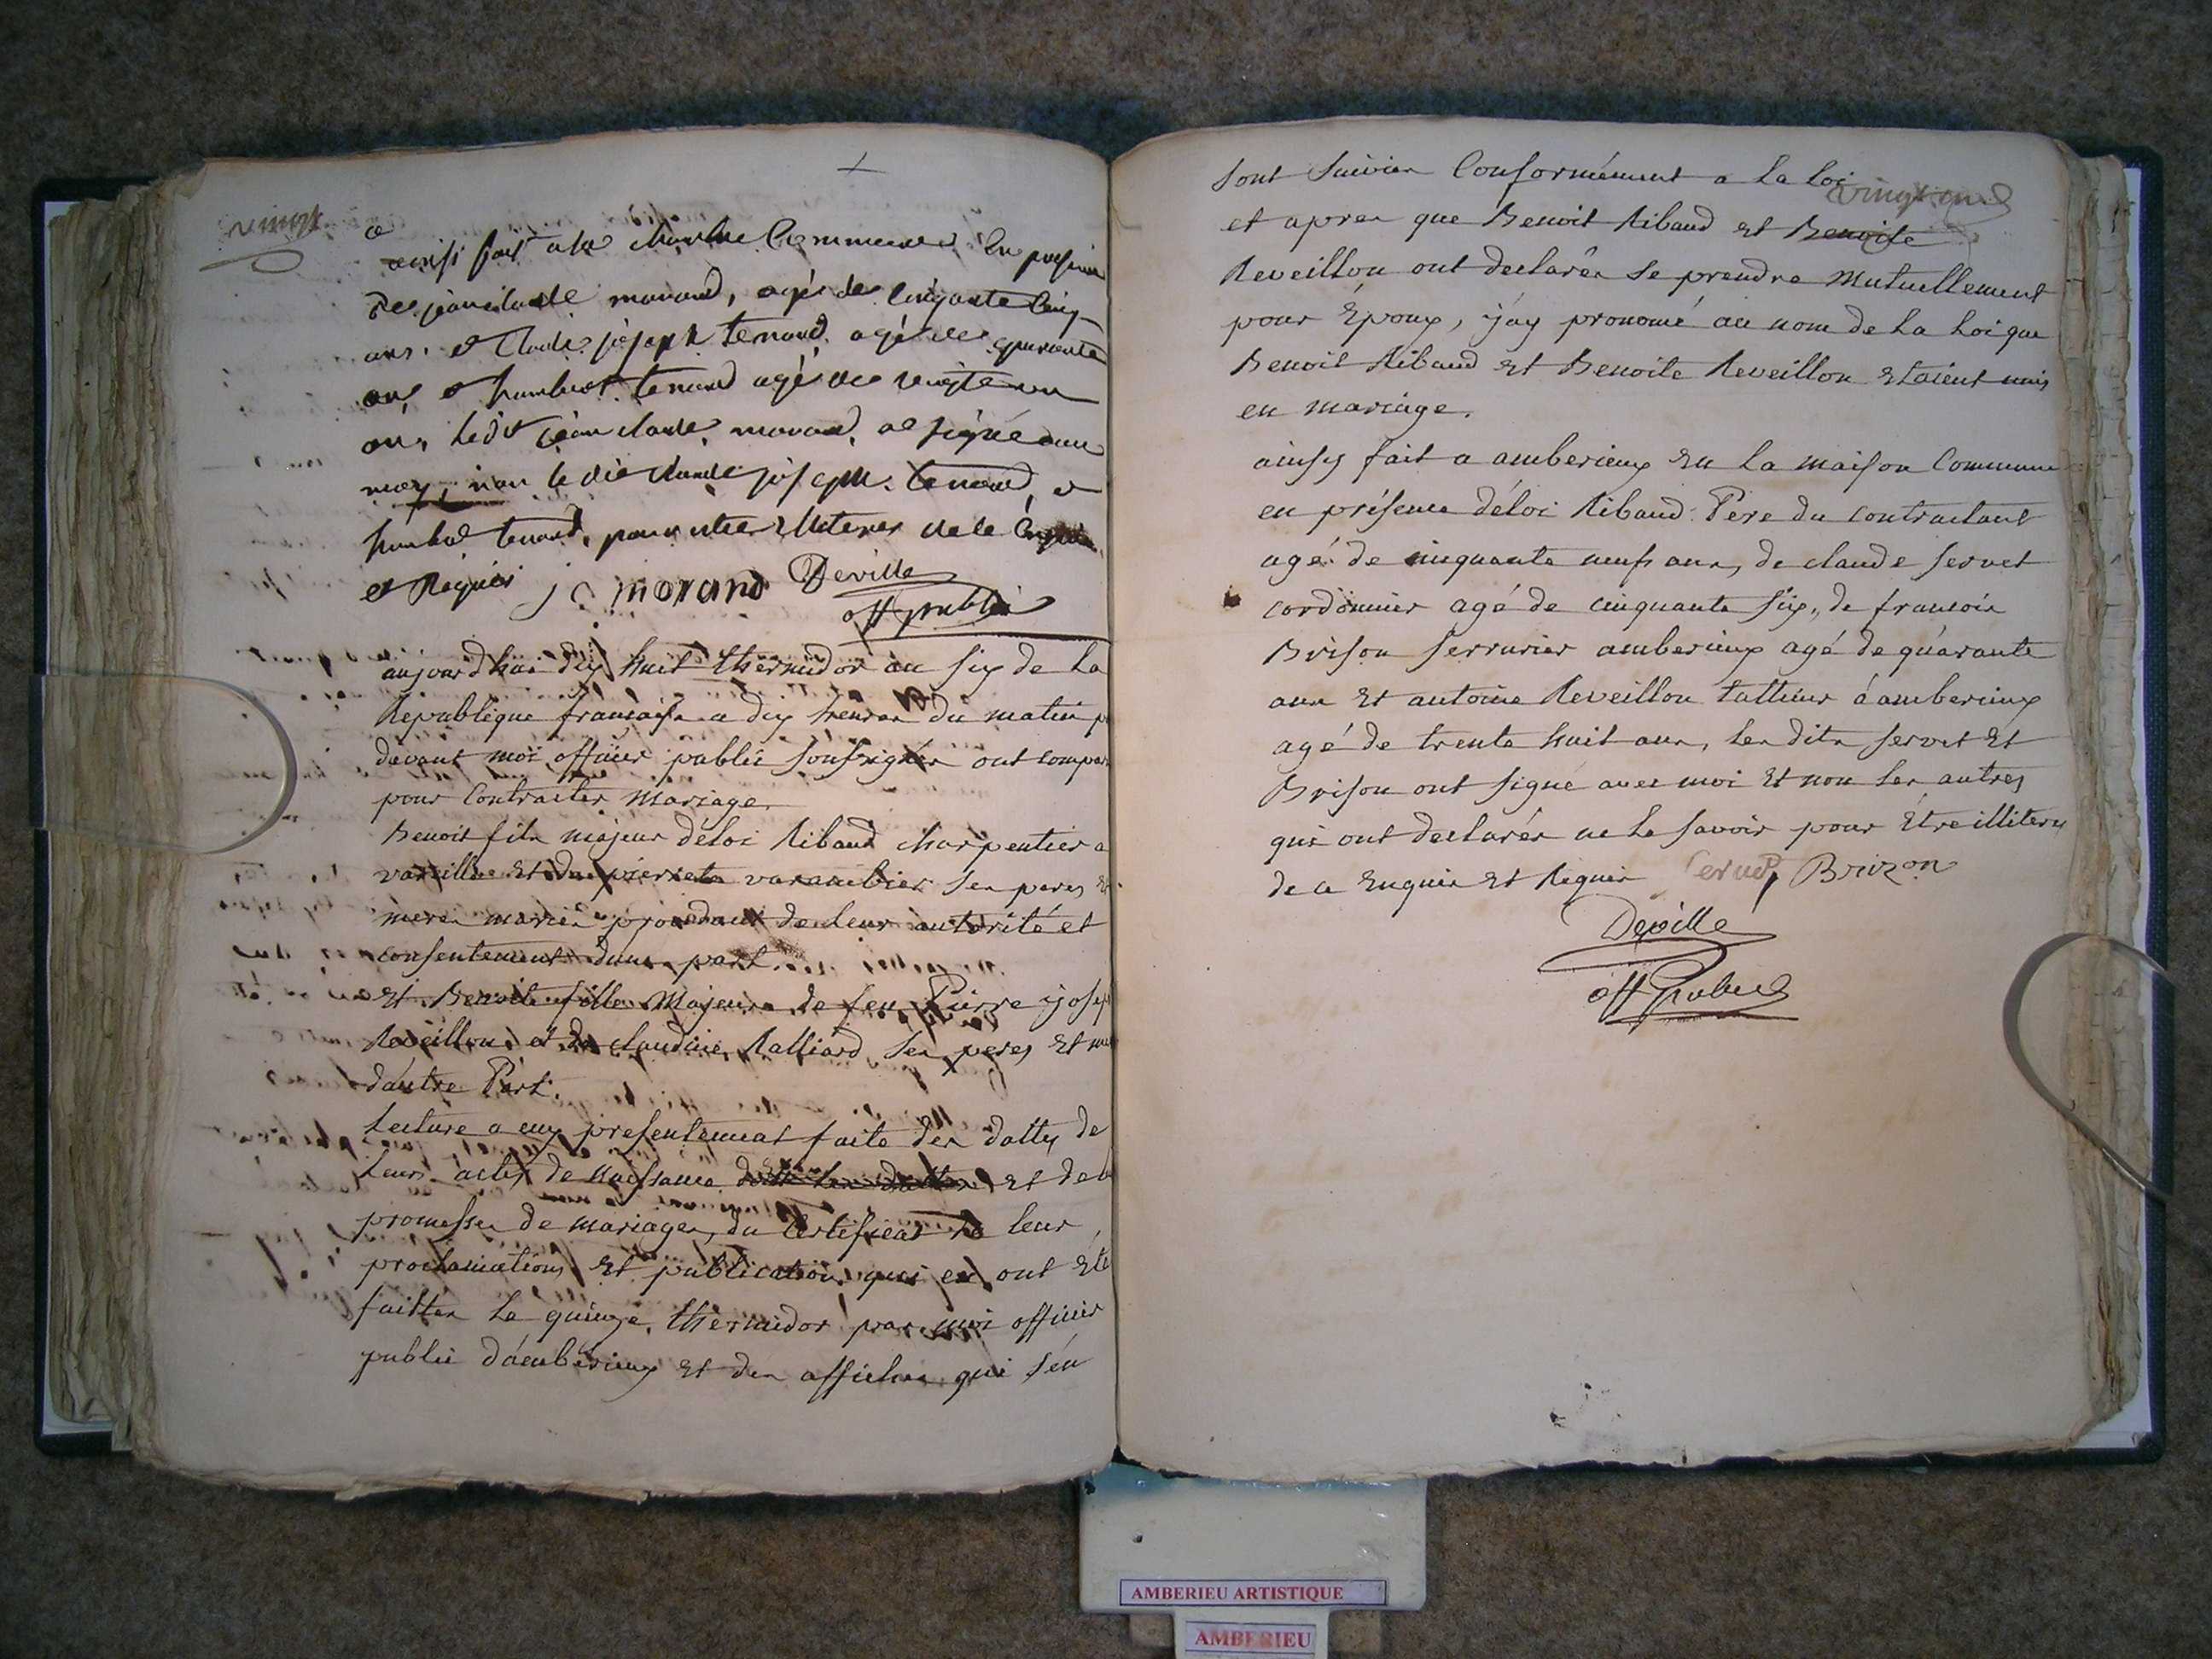 vingt
ainsi fait a la chambre Commune En presence
De jean claude morand, agé de Cinquante Cinq
ans, et Claude joseph tenand agé de quarante
ans, et humbert tenand agé de vingt
ans, ledit jean claude morand, a signé avec
moy, non le dit claude joseph tenand, et
humbert tenand, pour etre illiteres de ce Enquis
et Requis j c morand Deville
off public
aujourdhui dix huit thermidor an six de la
Republique francaise a dix heures du matin p
devant moi officier public soussignér ont compar
pour Contracter Mariage.
Benoit fils majeur déloi Ribaud charpentier a
vareille Et de pierrete varambier ses peres Et
meres mariés procedant de leur autorité et
consentement dune part.
Et Benoite fille Majeure de feu Pierre joseph
Reveillon et de claudine Ralliard ses peres Et m
dautre Part.
Lecture a eux presentement faite des datty de
Leurs actes de Naissance dont les dattes Et de
promesses de mariages, du Certificat de leur
proclamations Et publication qui en ont Eté
faittes Le quinze thermidor par moi officier
public d'amberieux Et des affiches qui s'en
sont suivies Conformément a La Loi
vingt un
et apres que Benoit Ribaud Et Benoite
Reveillon ont declarés se prendre Mutuellement
pour Époux, j'ay pronomé au nom de La Loi que
Benoit Ribaud Et Benoite Reveillon Etoient unis
en mariage.
ainsy fait a amberieux En La maison Commune
en présence déloi Ribaud Pere du contractant
agé de cinquante neufs ans, de claude servet
cordonnier agé de cinquante six, de francois
Brison serrurier amberieux agé de quarante
ans Et antoine Reveillon tallieur á amberieux
agé de trente huit ans, les dits servet Et
Brison ont signé avec moi Et non les autres
qui ont declarés ne le savoir pour Etre illiteres
de ce Enquis Et Requis Cervet, Brizon
Deville
off Public
AMBERIEU ARTISTIQUE
AMBERIEU